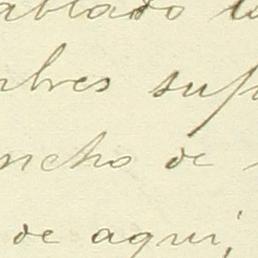 ablado
bres
ncho de
de aqui,